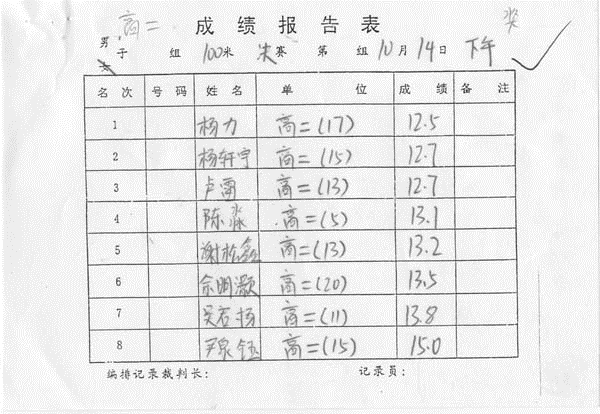 高二 成绩报告表 奖
男子 组 100米 决赛 第 组 10月14日 下午
女
名次 号码 姓名 单位 成绩 备注
1 杨力 高二(17) 12.5
2 杨轩宇 高二(15) 12.7
3 卢雷 高二(13) 12.7
4 陈淼 高二(5) 13.1
5 谢松 高二(13) 13.2
6 余明灏 高二(20) 13.5
7 吴若扬 高二(11) 13.8
8 尹泉钰 高二(15) 15.0
编排记录裁判长: 记录员: